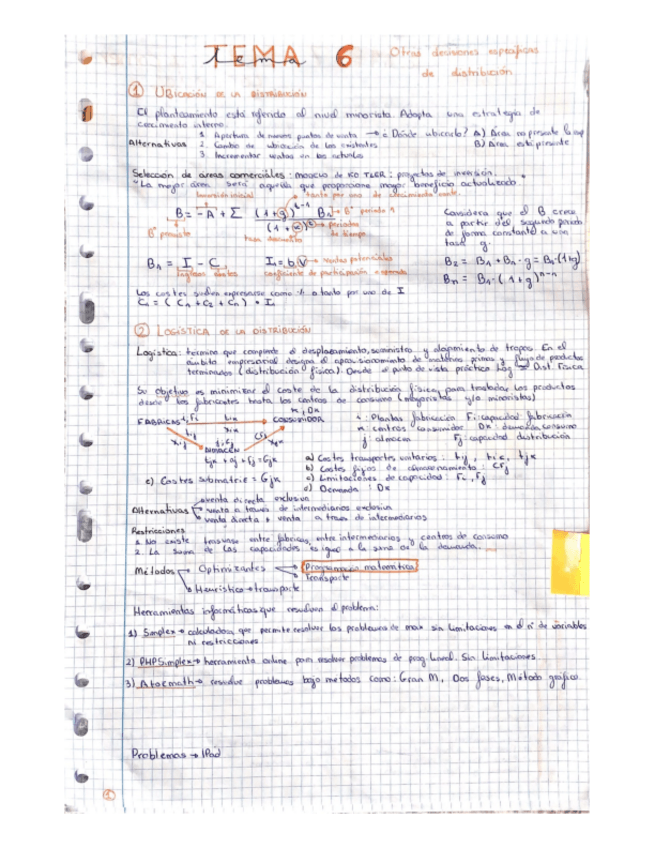 TEMA 6 Otras decisiones específicas
de distribución
1 UBICACIÓN DE LA DISTRIBUCIÓN
El planteamiento está referido al nivel minorista. Adopta una estrategia de
crecimiento interno.
Alternativas
1. Apertura de nuevos puntos de venta → ¿Dónde ubicarlo? A) Área no presente la
B) Área está presente
2. Cambio de ubicación de los existentes
3. Incrementar ventas en los actuales
Selección de áreas comerciales: modelo de KOTLER: proyectos de inversión.
"La mejor área será aquella que proporcione mayor beneficio actualizado"
Inversión inicial
tanto por uno de crecimiento
B = -A + Σ (1+g)^n-1 B1 → Bº periodo 1
(1+α)^n → periodos de tiempo
Bº previsto
tasa descuento
Considera que el B crece
a partir del segundo periodo
de forma constante a una
tasa g.
B1 = I - C
Ingresos
I1 = b.V → ventas potenciales
coeficiente de participación
B2 = B1 + B1 · g = B1 · (1+g)
Bn = B1 · (1+g)^n-1
Los costes suelen expresarse como % o tanto por uno de I
C1 = (C1 + C2 + Cn) · I1
2 LOGÍSTICA DE LA DISTRIBUCIÓN
Logística: término que comprende el desplazamiento, suministro y alojamiento de tropas. En el
ámbito empresarial designa el aprovisionamiento de materias primas y flujo de productos
terminados (distribución física). Desde el punto de vista práctico Log = Dist. Física
Su objetivo es minimizar el coste de la distribución física para trasladar los productos
desde los fabricantes hasta los centros de consumo (mayoristas y/o minoristas)
FABRICAS i, Fi
CONSUMIDOR
ALMACÉN
i: Plantas fabricación Fi: capacidad fabricación
k: centros consumidor Dk: demanda consumo
j: almacén Fj: capacidad distribución
a) Costes transportes unitarios: tij, tik, tjk
b) Costes fijos de almacenamiento: CFj
c) Limitaciones de capacidad: Fi, Fj
d) Demanda: Dk
Alternativas
venta directa exclusiva
venta a través de intermediarios exclusiva
venta directa + venta a través de intermediarios
Restricciones
1. No existe trasvase entre fábricas, entre intermediarios y centros de consumo
2. La suma de las capacidades es igual a la suma de la demanda.
Métodos
Optimizantes
Programación matemática
Transporte
Heurístico → transporte
Herramientas informáticas que resuelven el problema:
1) Simplex → calculadora que permite resolver los problemas de max sin limitaciones en el nº de variables
ni restricciones
2) PHPSimplex → herramienta online para resolver problemas de prog lineal. Sin limitaciones
3) Atozmath → resuelve problemas bajo métodos como: Gran M, Dos fases, Método gráfico.
Problemas → IPad
1